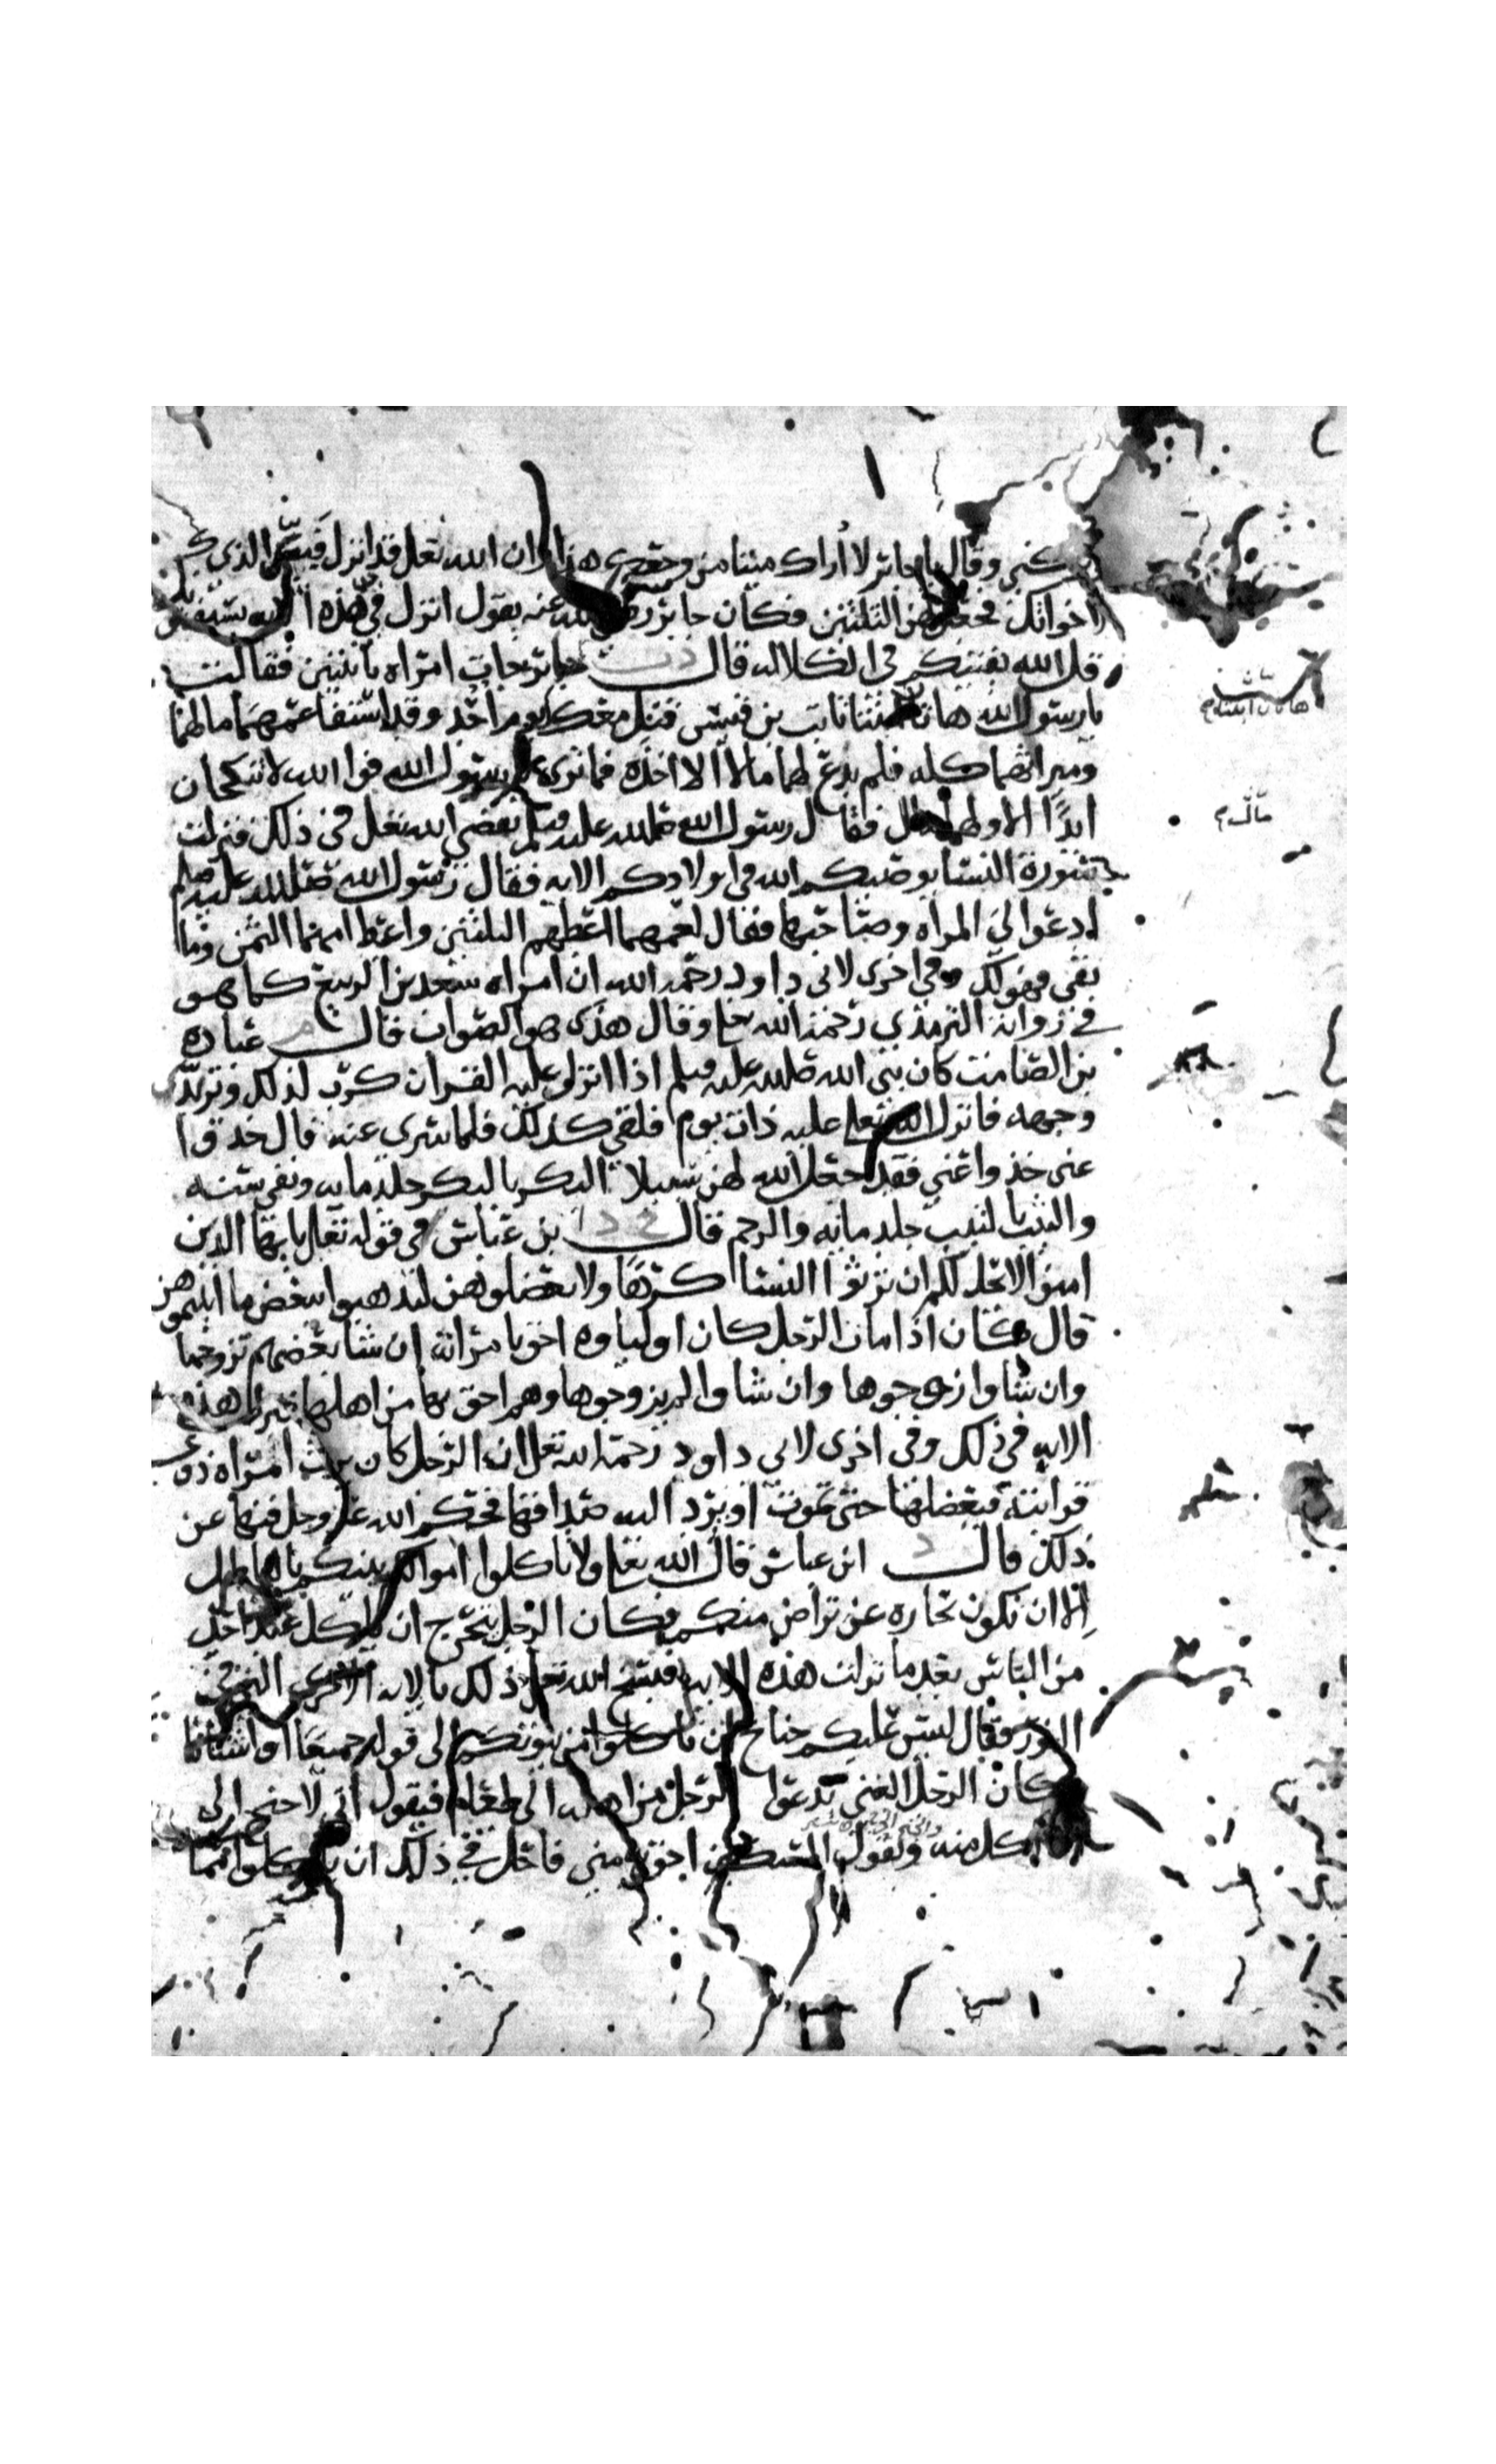 وتركني وقال يا جابر لا أراك ميتا من وجعك هذا وان الله تعلى قد انزل فبين الذي
لاخواتك فجعل لهن الثلثين فكان جابر رضي الله عنه يقول انزل في هذه الايه يستفتونك
قل الله يفتيكم في الكلاله قال د ت جابر جات امراه بابنتين فقالت
يا رسول الله هاتان بنتا ثابت بن قيس قتل معك يوم احد وقد استفا عمهما مالهما
وميراثهما كله فلم يدع لهما مالا الا اخذه فما ترى يا رسول الله فوا الله لا تنكحان
ابدا الا ولهما مال فقال رسول الله صلى الله عليه وسلم يقضي الله تعلى في ذلك فنزلت
سورة النسا يوصيكم الله في اولادكم الايه فقال رسول الله صلى الله عليه وسلم
ادعوا لي المراه وصاحبها فقال لعمهما اعطهم الثلثين واعط امهما الثمن وما
بقي فهو لك وفي اخرى لابي داود رحمه الله ان امراه سعد بن الربيع كما هو
في رواية الترمذي رحمه الله تعلى وقال هذى هو الصواب قال م عباده
بن الصامت كان نبي الله صلى الله عليه وسلم اذا انزل عليه القران كرب لذلك وتربد
وجهه فانزل الله تعلى عليه ذات يوم فلقي كذلك فلما سري عنه قال خذوا
عني خذوا عني فقد جعل الله لهن سبيلا البكر بالبكر جلد مايه ونفي سنه
والثيب بالثيب جلد مايه والرجم قال خ د ا بن عباس في قوله تعلى يا يها الذين
امنوا لا يحل لكم ان ترثوا النسا كرها ولا تعضلوهن لتذهبوا ببعض ما اتيتموهن
قال كان اذا مات الرجل كان اولياوه احق بامراته ان شا بعضهم تزوجها
وان شاوا زوجوها وان شاوا لم يزوجوها وهم احق بها من اهلها فنزلت هذه
الايه في ذلك وفي اخرى لابي داود رحمه الله تعلى ان الرجل كان يرث امراه ذي
قرابته فيعضلها حتى تموت او ترد اليه صداقها فحكم الله عز وجل فنها عن
ذلك قال د ابن عباس قال الله تعلى ولا تاكلوا اموالكم بينكم بالباطل
الا ان تكون تجاره عن تراض منكم فكان الرجل يتحرج ان ياكل عند احد
من الناس بعد ما نزلت هذه الايه فنسخ الله تعلى ذلك بالايه الاخرى التي في
النور فقال ليس عليكم جناح ان تاكلوا من بيوتكم الى قوله جميعا او اشتاتا
كان الرجل الغني يدعوا الرجل من اهله الى طعام فيقول اني لا جنح ان
اكل منه ويقول المسكين احق به مني فاحل في ذلك ان ياكلوا مما
هاتان ابنتا
مال